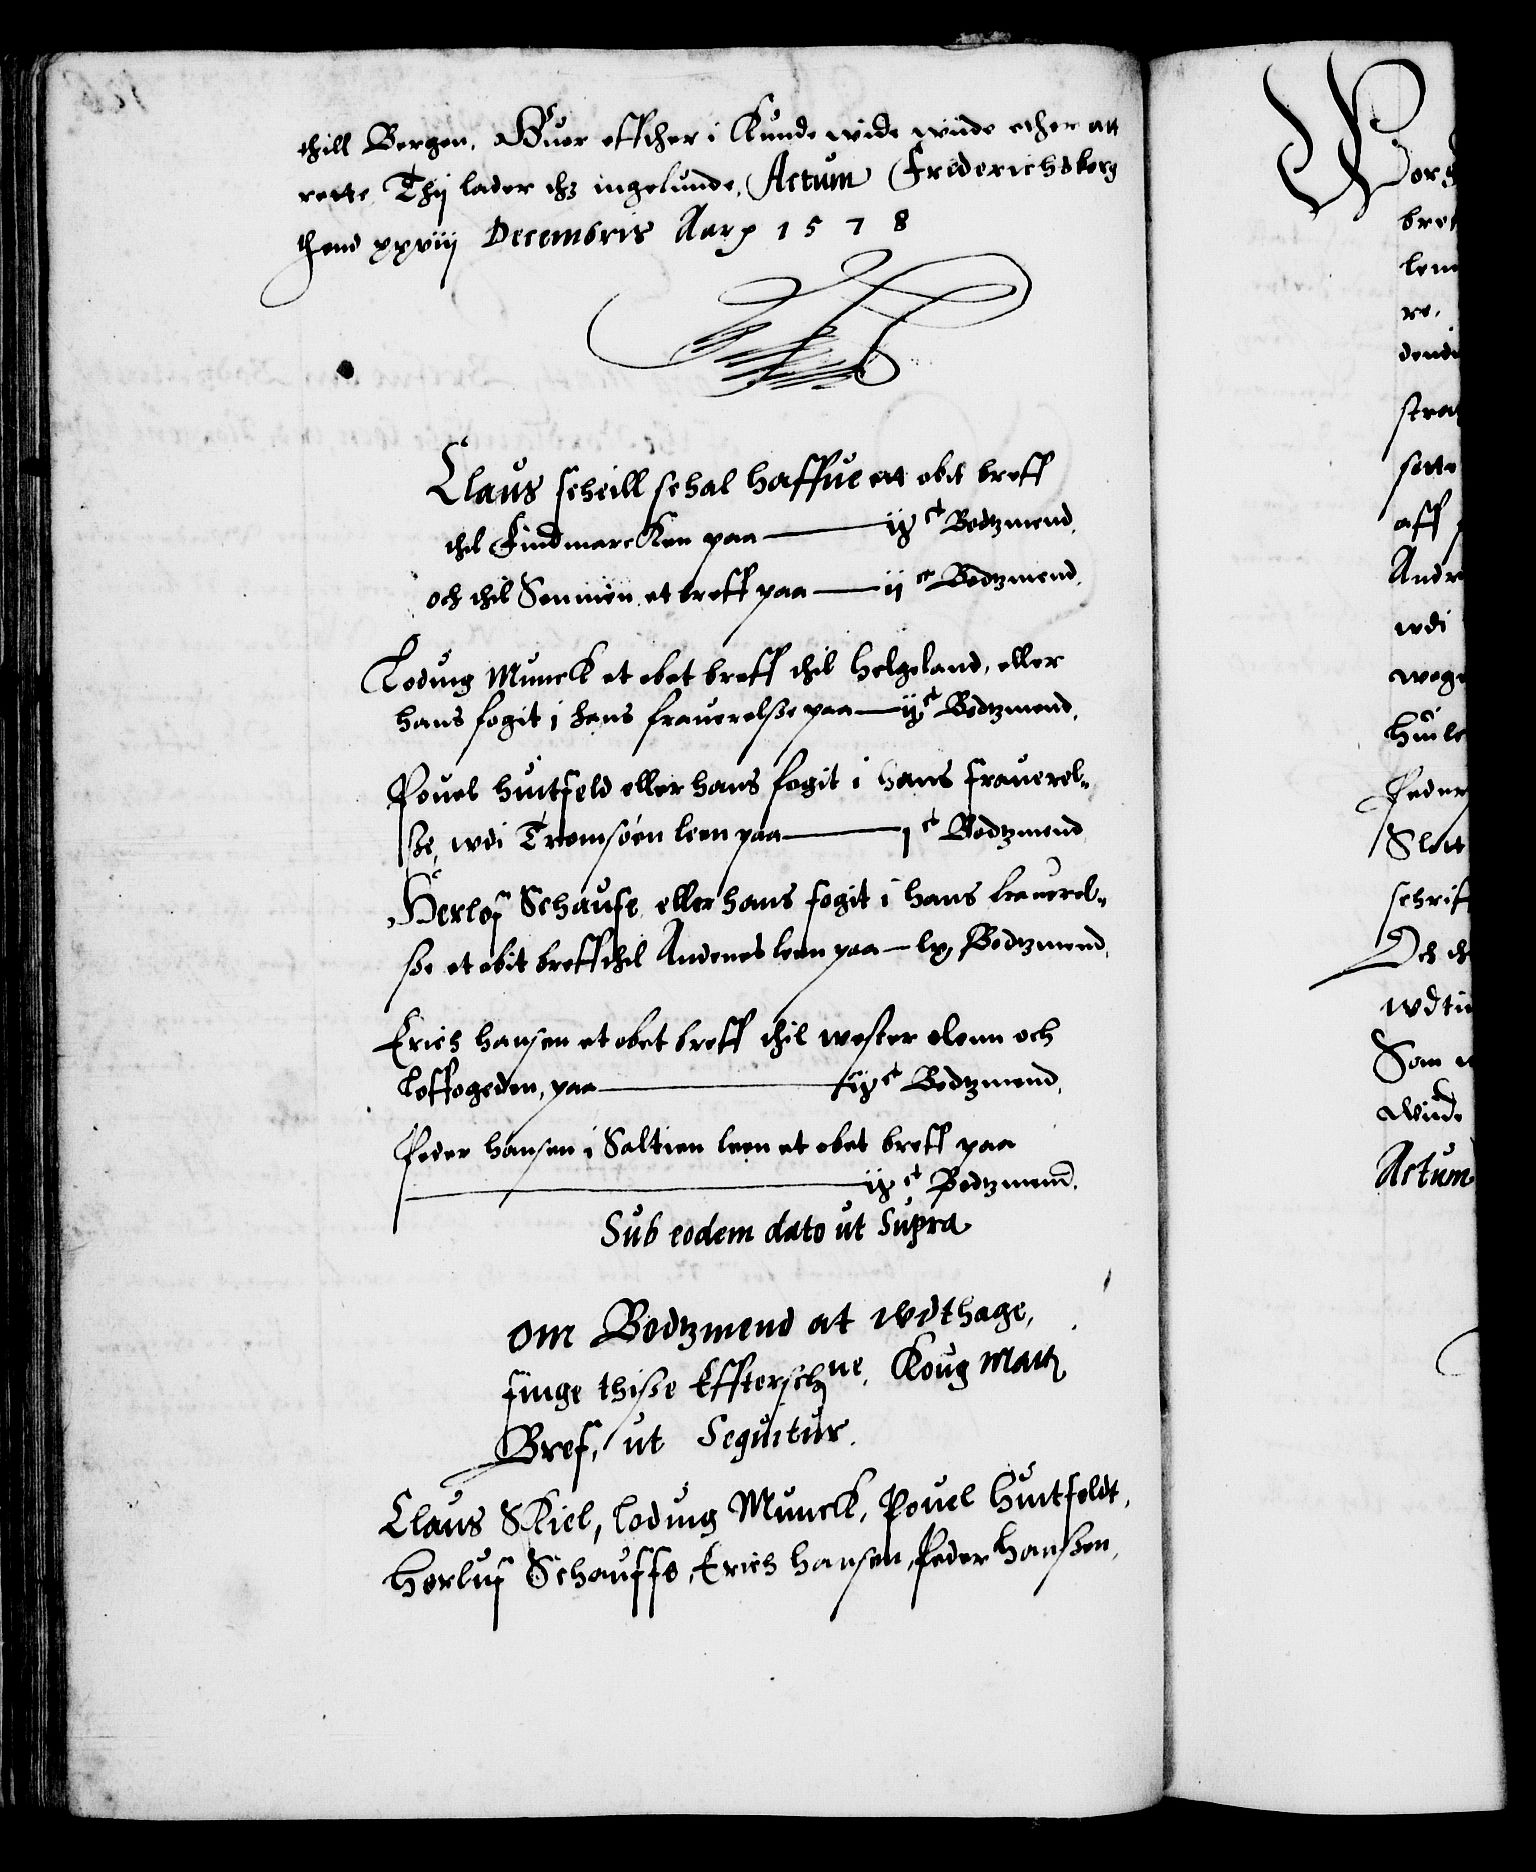 thill Bergen, Huor effther i kunde wide wiide ether att
rette Thij lader thz ingelunde, Actum Frederichsborg
thend xxviij Decembris Aar p 1578
Claus scheill schal haffue at obit breff
thil Findmarcken paa — ijc Bodtzmend,
och thil Senniien et breff paa — ijc Bodtzmend,
Loduig Munck et obet breff thil helgeland, eller
hans fogit i hans frauerelsse paa — ijc Bodtzmend,
Pouel huitfeld eller hans fogit i hans frauerel-
sse, wdi Tromsøen leen paa — jc Bodtzmend
Herlof Schaufe eller hans fogit i hans frauerel-
sse et obit breff thil Andenes leen paa — lx, Bodtzmend,
Erich hansen et obet breff thil wester olenn och
Loffogeden, paa — ijc Bodtzmend,
Peder hansen i Saltien leen et obet breff paa
— ijc Bodtzmend,
Sub eodem dato ut Supra
Om Bodtzmend at wdthage,
finge thisse Effterschne, Koug Matt
Bref, ut Sequitur.
Claus Skiel, loduig Munck, Pouel huitfeldt,
herluf Schauffe, Erich hansen, Peder hanssen,
bref
re,
aff
Andr
wdi
Peder
Slott
schrif
Och th
Som
Actum